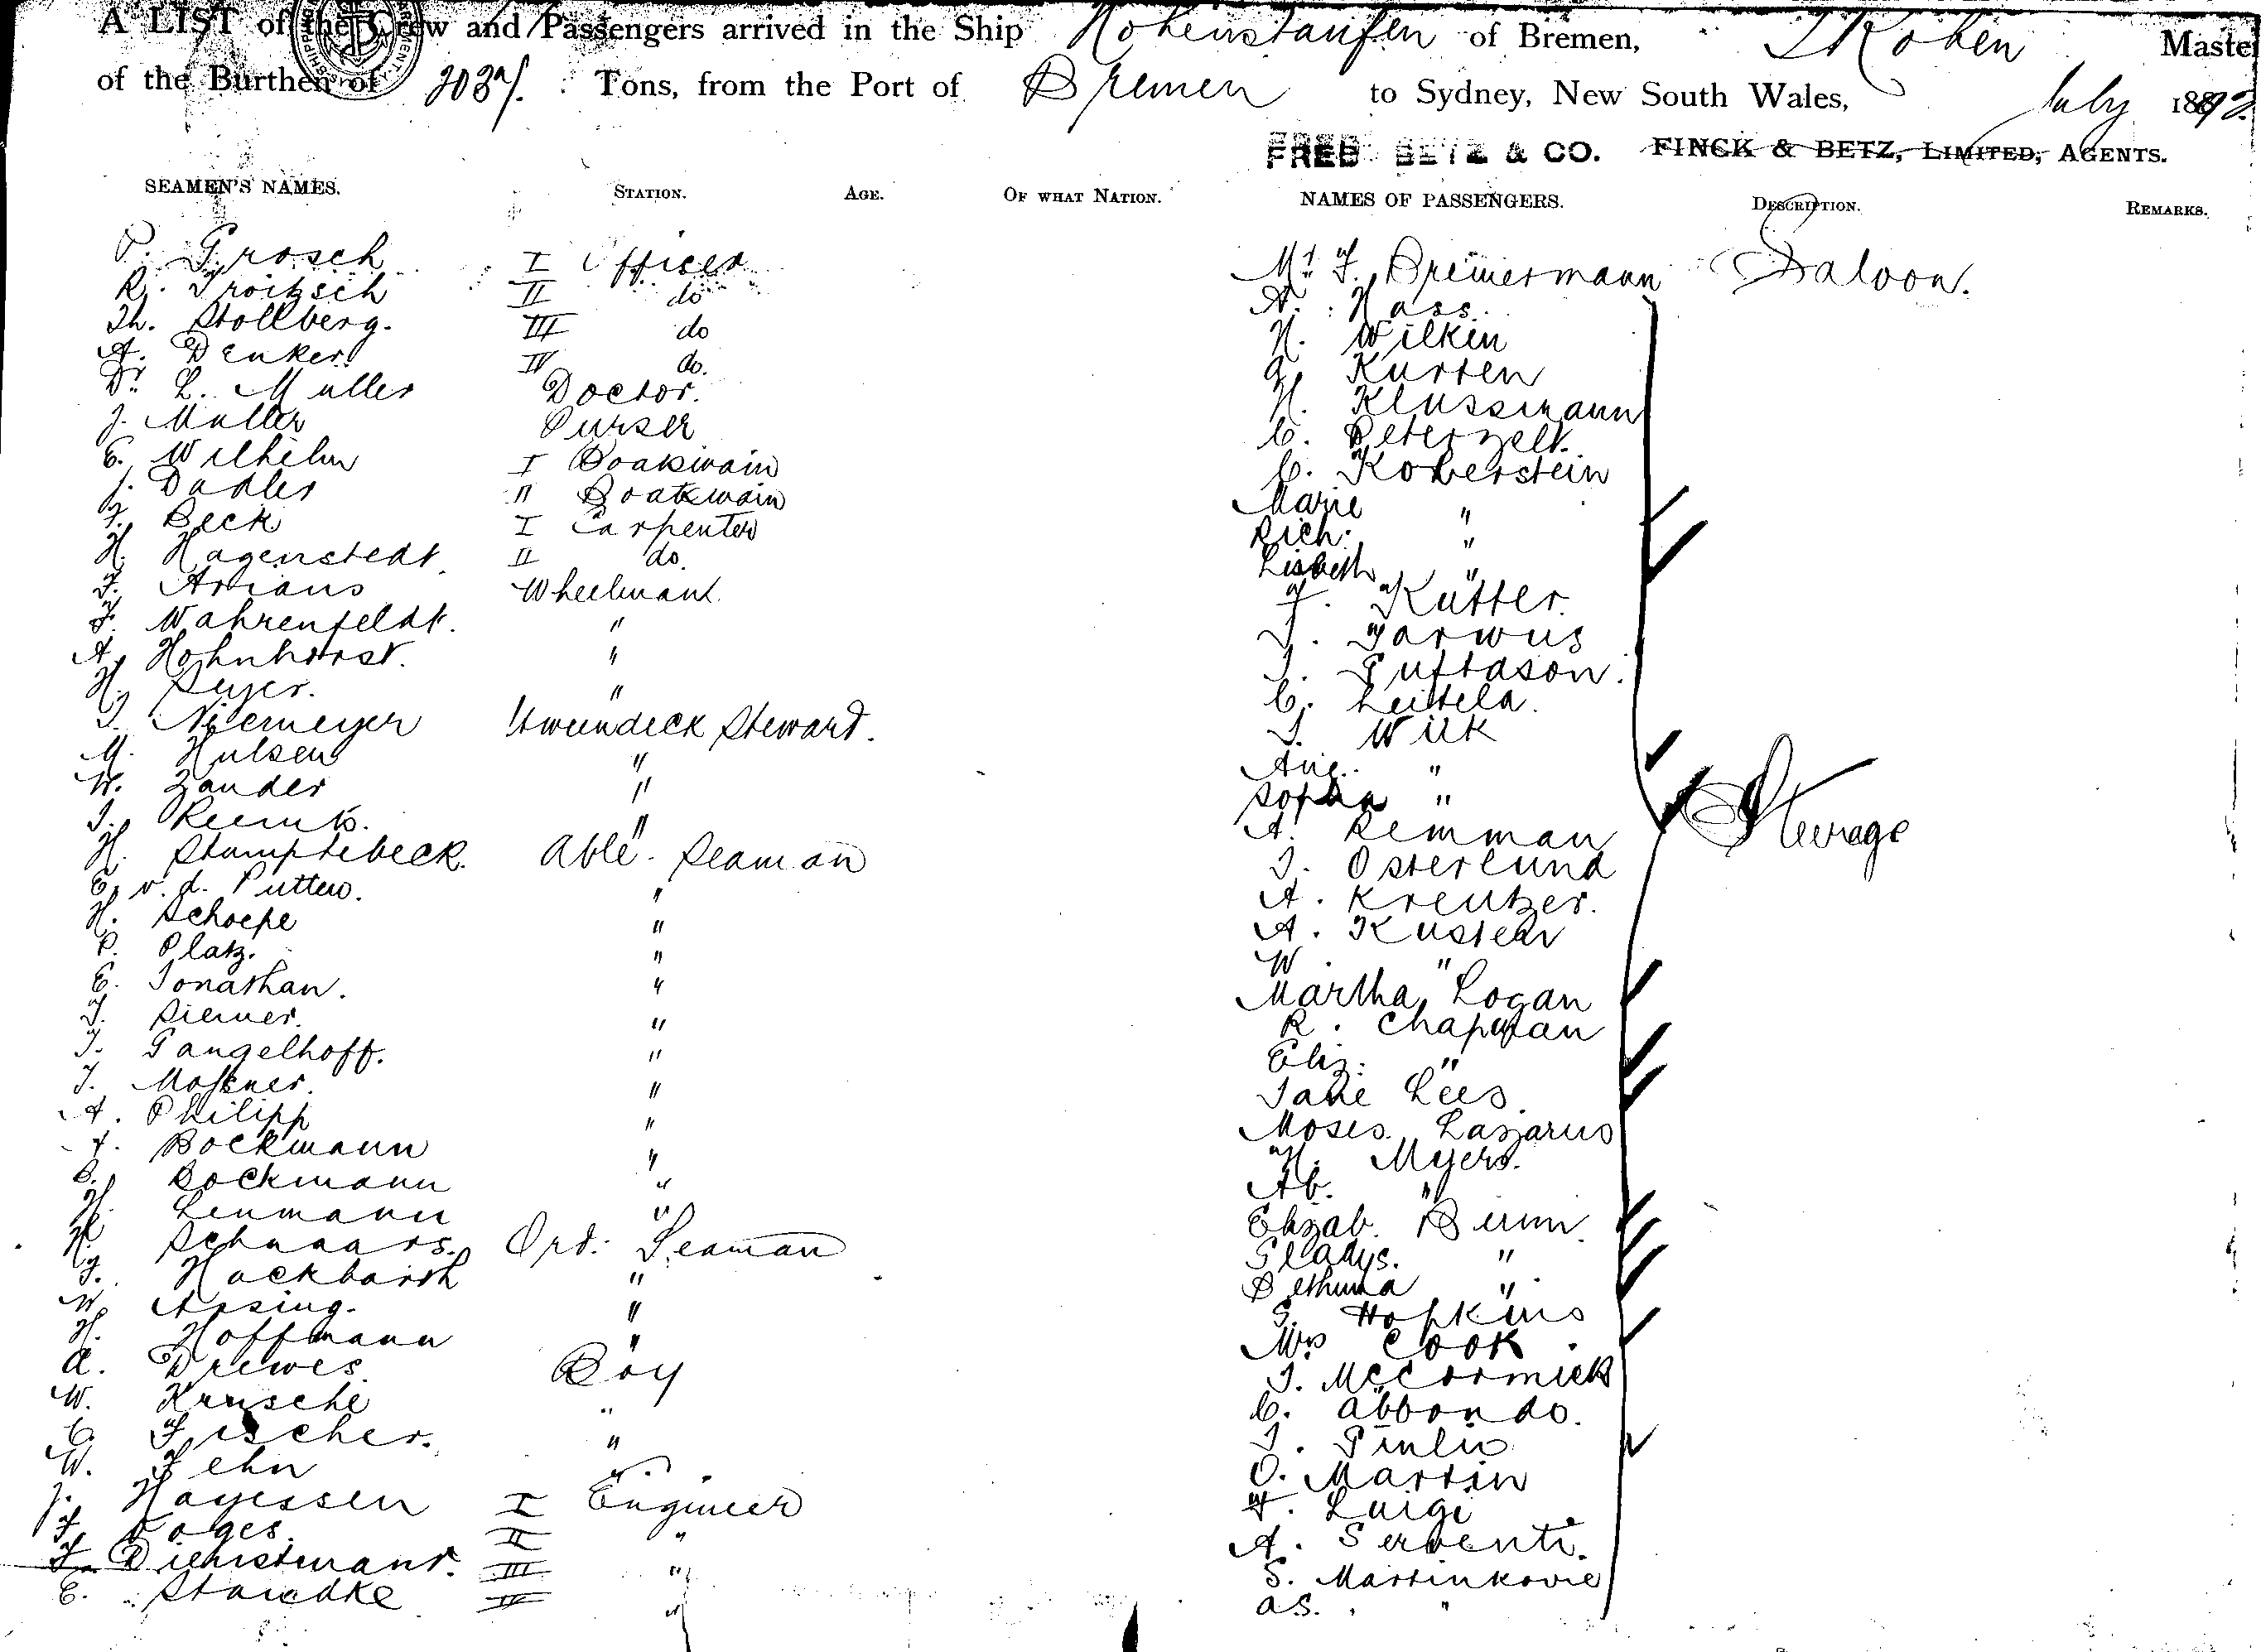 A LIST of the Crew and Passengers arrived in the Ship Hohenstaufen of Bremen, Master
of the Burthen of Tons, from the Port of Bremen to Sydney, New South Wales, July 1892.
FRED BETZ & CO. FINCK & BETZ, LIMITED, AGENTS.
SEAMEN'S NAMES. STATION. AGE. OF WHAT NATION.
P. Grosch I Officer
R. Troitzsch II do
Th. Stollberg. III do
A. Denker IV do.
Dr. L. Muller Doctor.
J. Muller Purser
E. Wilhelm I Boatswain
J. Dadler II Boatswain
F. Beck I Carpenter
H. Hagenstedt. II do.
F. Arians Wheelmant.
F. Wahrenfeldt. "
A. Hohnhorst. "
H. "
J. Niemeyer Steward.
M. Hulsen "
W. Zander "
J. "
H. Stumptebeck. Able Seaman
E. v. d. Putten. "
H. Schoepe "
P. Platz. "
E. Jonathan. "
J. Siemer. "
J. Gangelhoff. "
J. "
A. Philipp "
Bockmann "
B. Bockmann "
H. Leumann "
H. Schnaars. Ord. Seaman
J. Hackbarth "
W. Assing. "
H. Hoffmann "
A. Drewes Boy
W. Krusche "
C. Fischer. "
W. Fehn "
J. Hayessen I Engineer
F. Voges. II "
F. III "
E. IV "
NAMES OF PASSENGERS. DESCRIPTION. REMARKS.
Mr. F. Bremermann Saloon.
A. Hass.
H. Wilkin
G. Kursten
H. Klussmann
C. Peterzelt.
C. Koberstein
Marie "
Rich. "
Lisbeth "
F. Kutter.
J. Jarwus
J. Guftason.
C. Leitela.
J. Wiik
Aug. "
Sophia "
A. Remman
J. Osterlund
A. Kreutzer.
A. Kuster
W. "
Martha Logan
R. Chapman
Eliz. "
Jane Lees.
Moses Lazarus
H. Myers.
Ab. "
Elizab. Bunn.
Gladys. "
Bethuna "
G. Hopkins
Mrs Cook.
J. McCormick
C. Abbondo.
J.
O. Martin
F. Luigi.
A. Serventi.
S. Martinkovic
as. "
Steerage